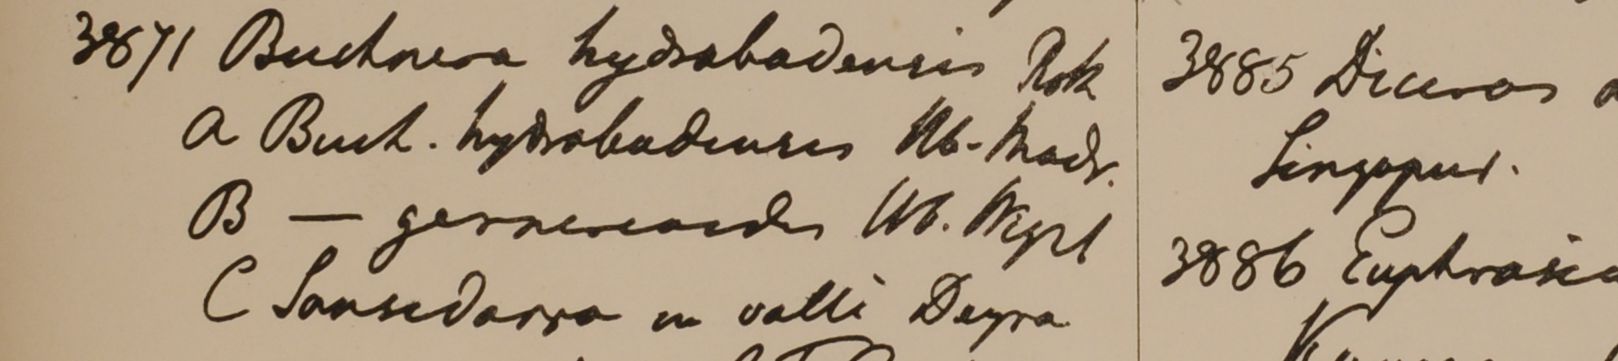 3871 Buchnera hydrabadensis Roth
A Buch. hydrabadensis Hb. Madr.
B — gesnerioides Hb. Wight
C Sansedarra in valli Deyra
3885 Diceros
Singapur.
3886 Euphrasia